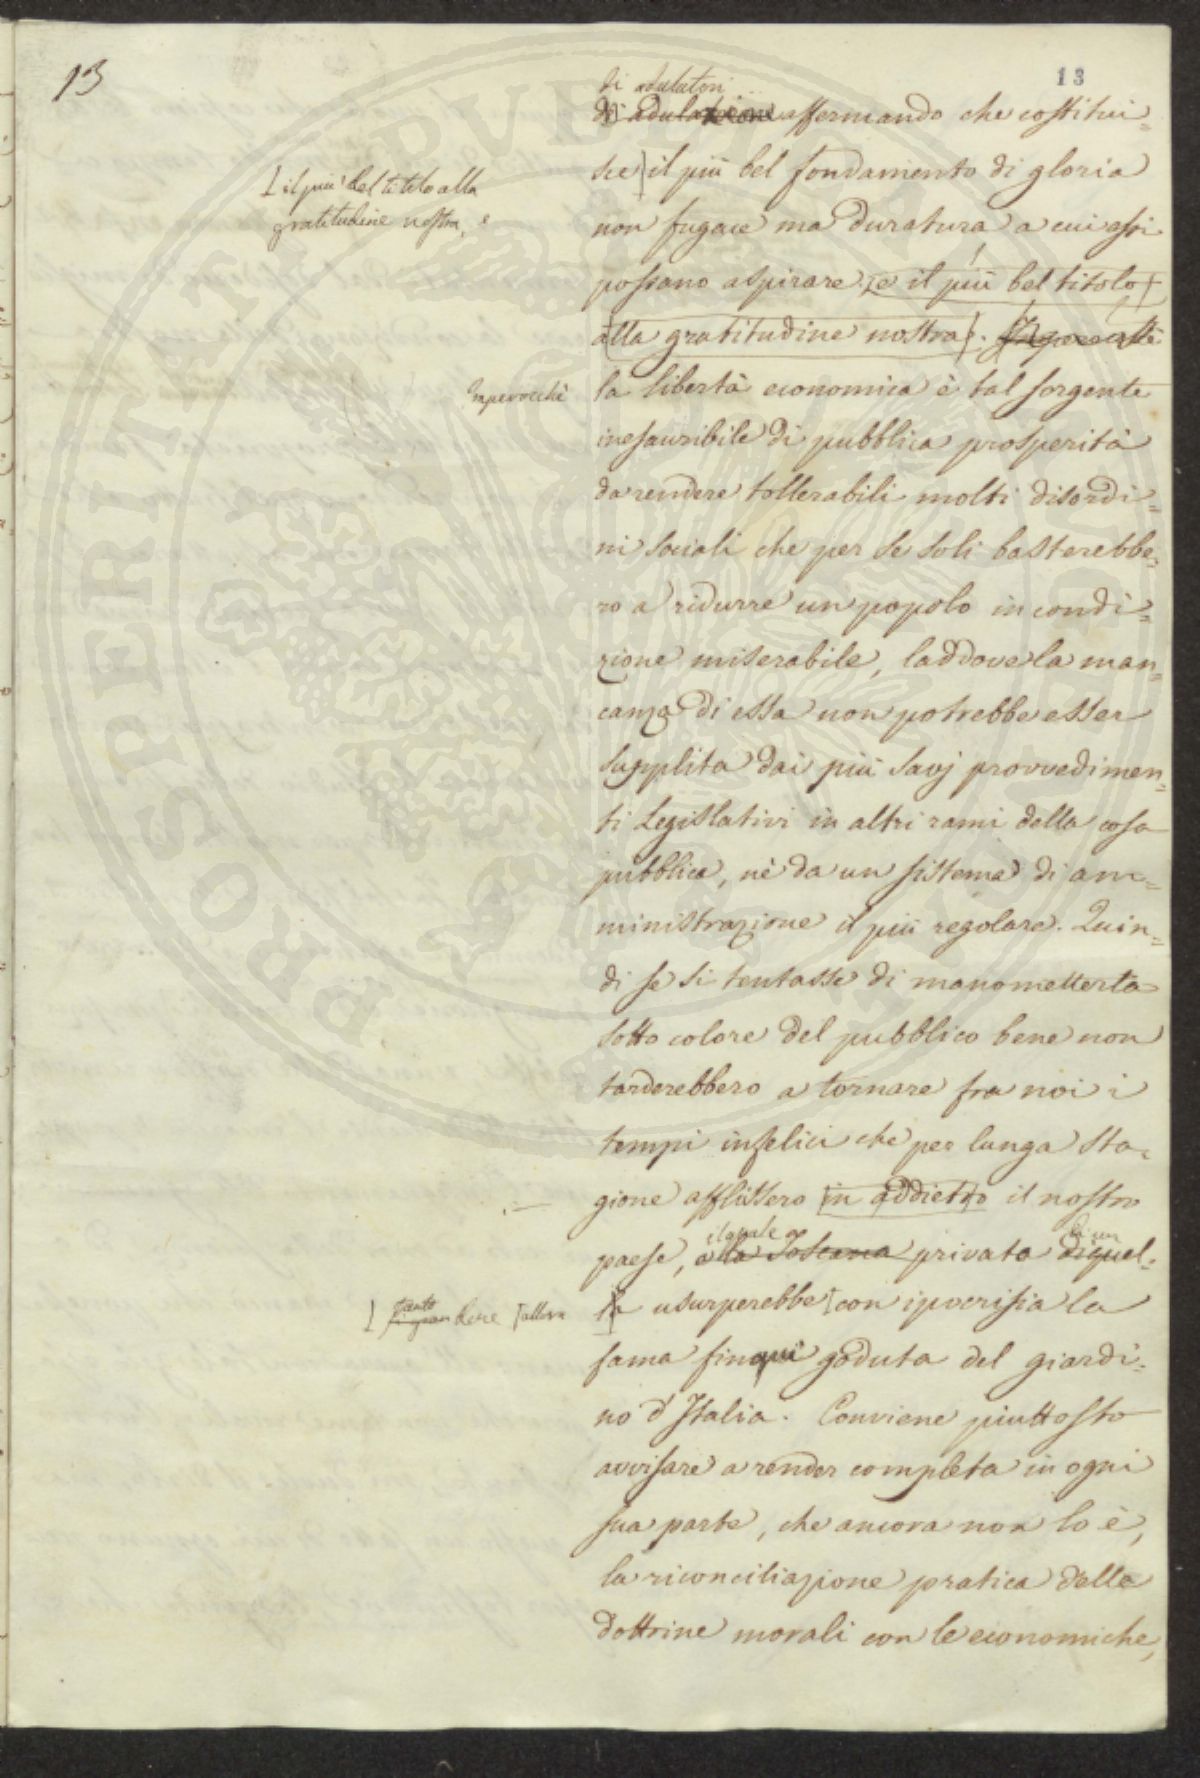 13
13
di adulatori
di adulazione affermando che costitui=
sce il più bel fondamento di gloria
[il più bel titolo alla
gratitudine nostra, e
non fugace ma duratura a cui essi
possano aspirare, e il più bel titolo
alla gratitudine nostra. Imperocchè
Imperocchè
la libertà economica è tal sorgente
inesauribile di pubblica prosperità
da rendere tollerabili molti disordi=
ni sociali che per se soli basterebbe=
ro a ridurre un popolo in condi=
zione miserabile, laddove la man=
canza di essa non potrebbe esser
supplita dai più savj provvedimen=
ti Legislativi in altri rami della cosa
pubblica, nè da un sistema di am=
ministrazione il più regolare. Quin=
di se si tentasse di manometterla
sotto colore del pubblico bene non
tarderebbero a tornare fra noi i
tempi infelici che per lunga sta=
gione afflissero in addietro il nostro
il quale di un
paese, e la Toscana privata di quel=
tanto
bene [allora
la usurperebbe con ipocrisia la
fama finqui goduta del giardi=
no d'Italia. Conviene piuttosto
avvisare a render completa in ogni
sua parte, che ancora non lo è,
la riconciliazione pratica delle
dottrine morali con le economiche,
PROSPERITATI PUBLICAE